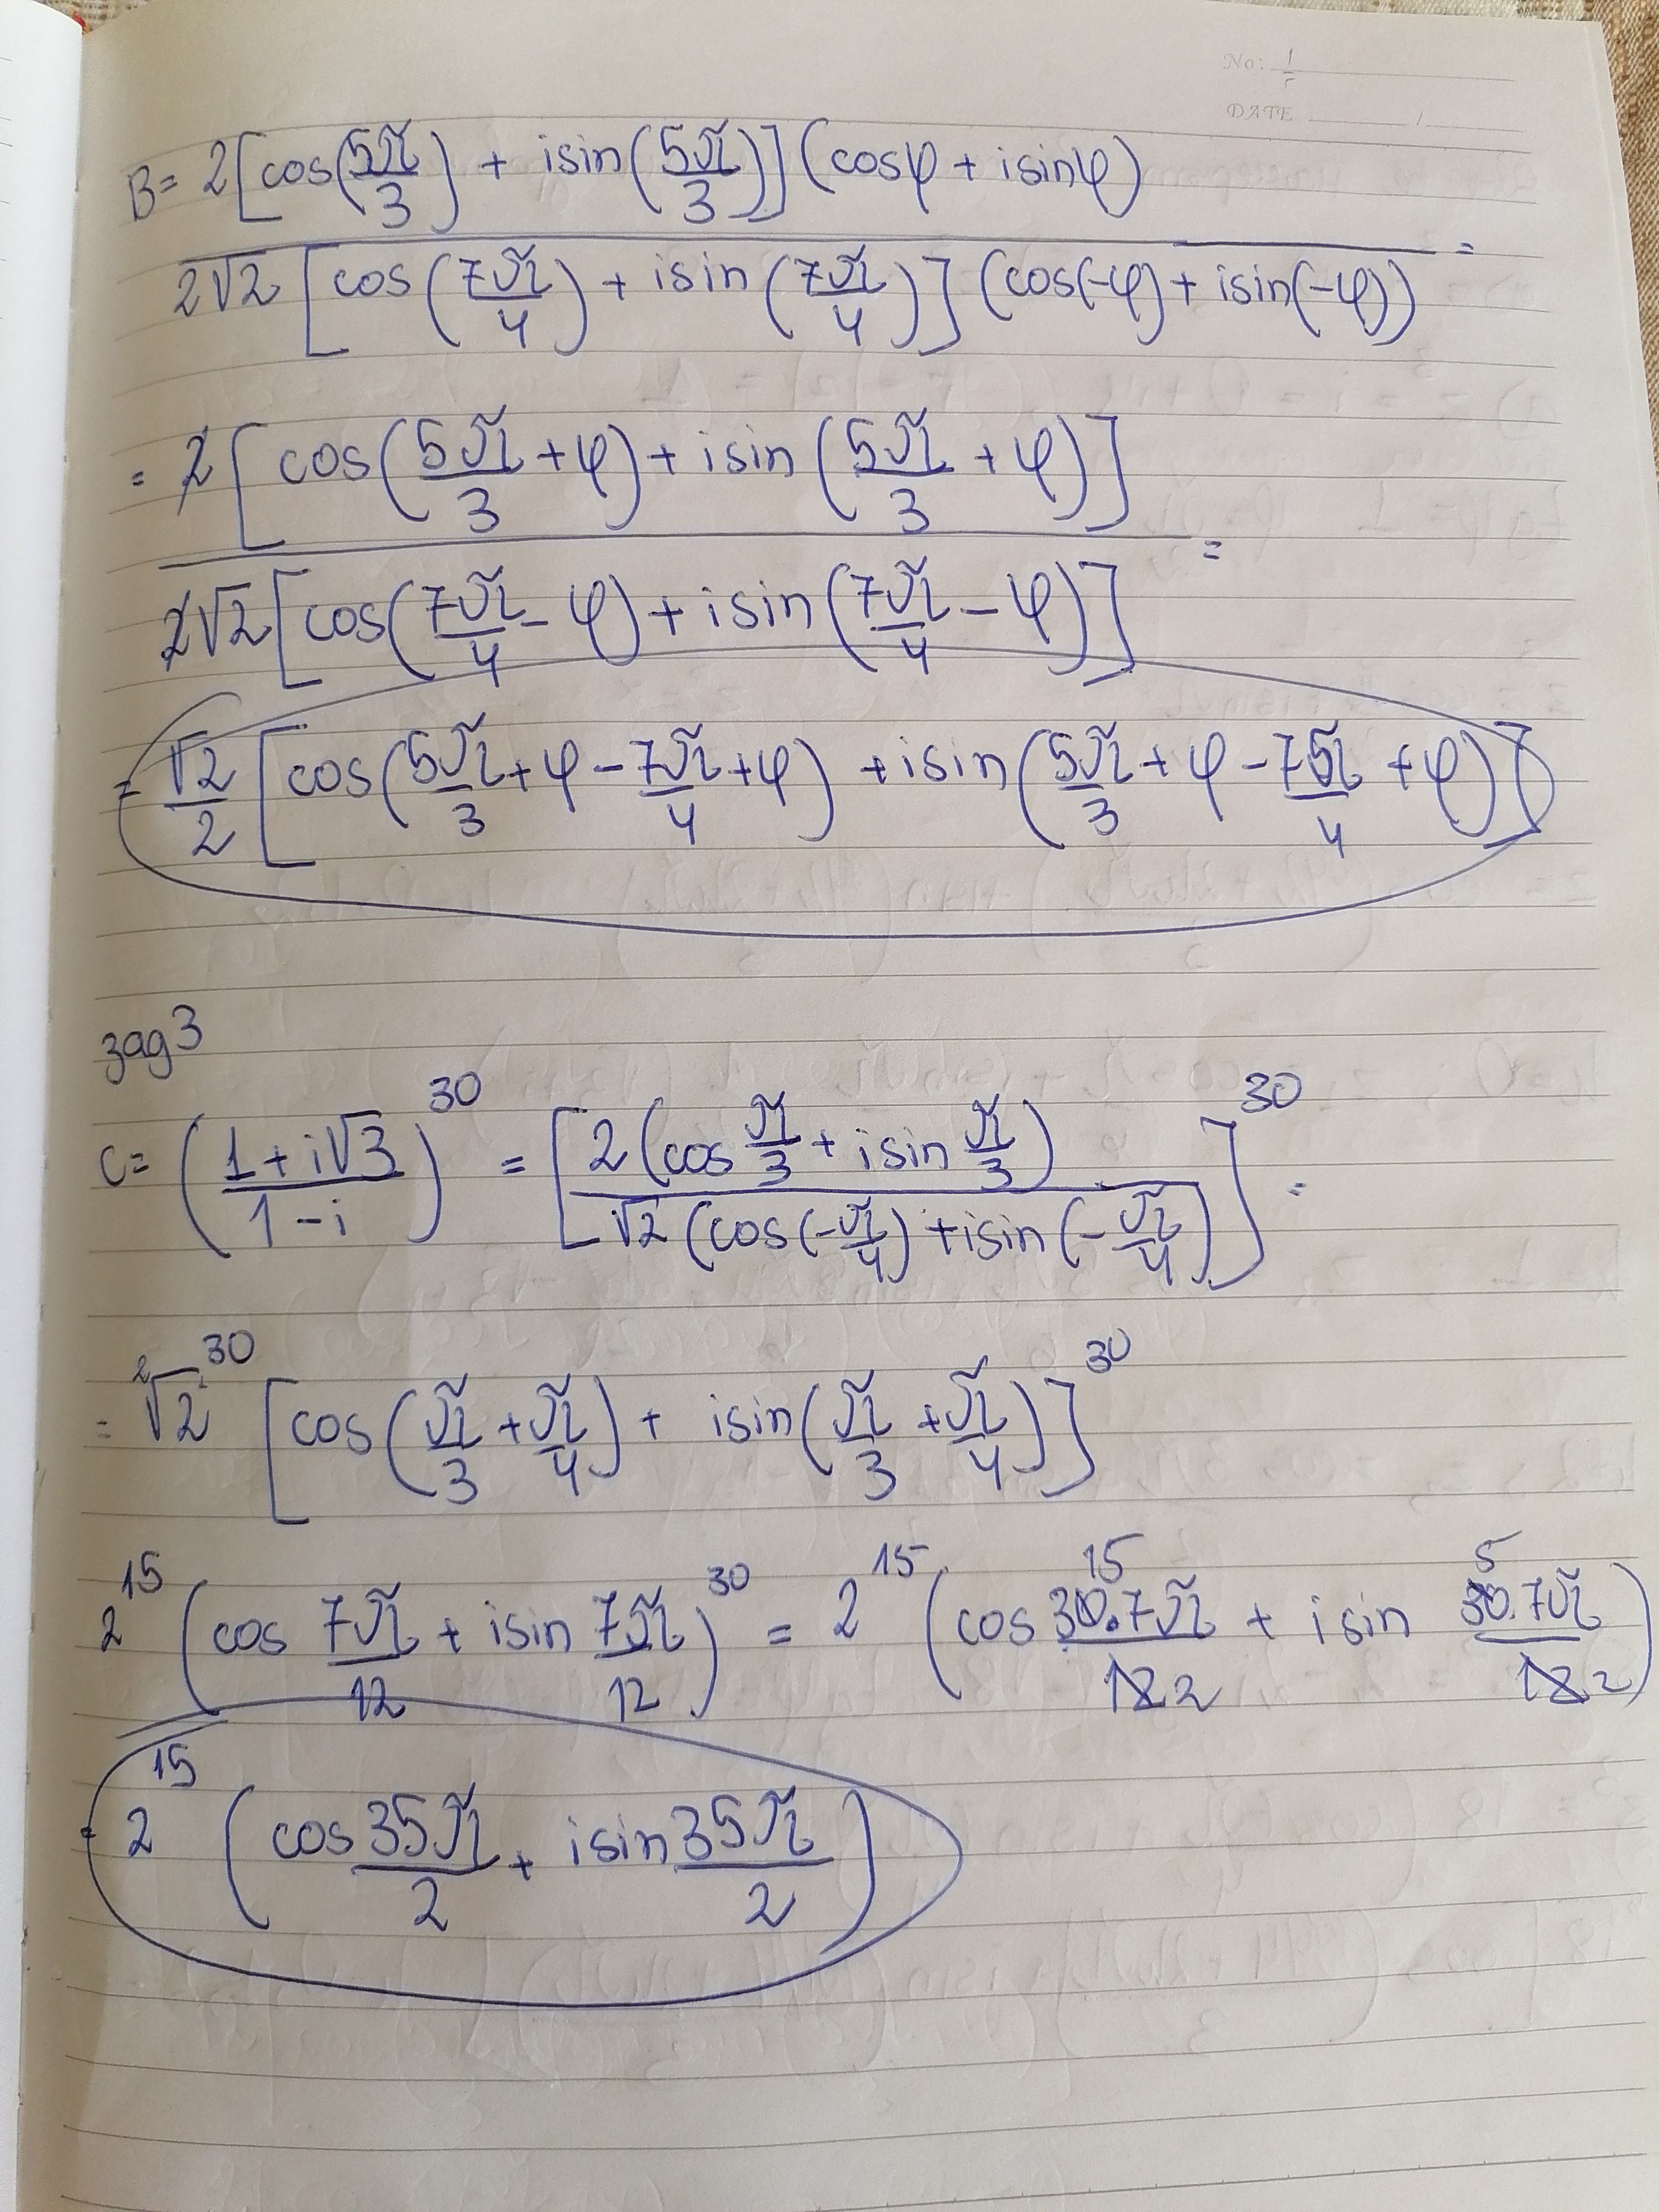 No: 1/5
DATE / /
B = 2[cos(5π/3) + isin(5π/3)](cosφ + isinφ)
2√2 [cos(7π/4) + isin(7π/4)] (cos(-φ) + isin(-φ)) =
= 2[cos(5π/3 + φ) + isin(5π/3 + φ)]
2√2[cos(7π/4 - φ) + isin(7π/4 - φ)] =
= √2/2 [cos(5π/3 + φ - 7π/4 + φ) + isin(5π/3 + φ - 7π/4 + φ)]
зад 3
C = ((1+i√3)/(1-i))^30 = [2(cos π/3 + isin π/3) / √2(cos(-π/4) + isin(-π/4))]^30 =
= ²√2^30 [cos(π/3 + π/4) + isin(π/3 + π/4)]^30
2^15 (cos 7π/12 + isin 7π/12)^30 = 2^15 (cos 30.7π/12 + isin 30.7π/12)
= 2^15 (cos 35π/2 + isin 35π/2)